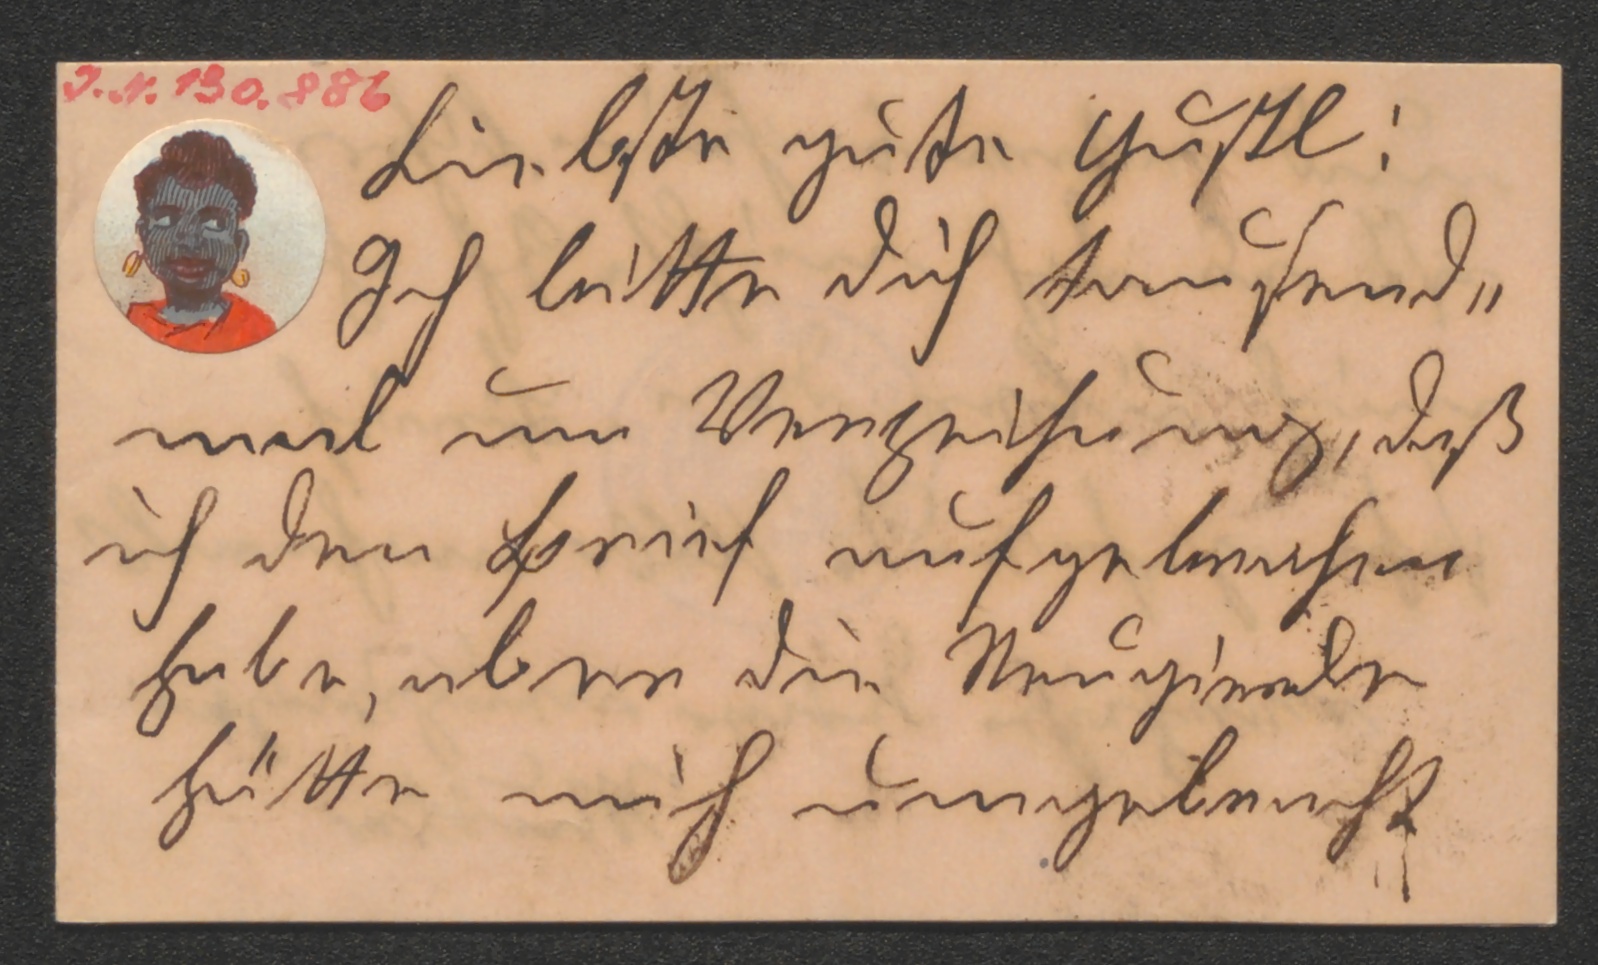 J.N. 130.886
Liebste gute Gustl!
Ich bitte dich tausend„
mal um Verzeihung, daß
ich den Brief aufgebrochen
habe, aber die Neugierde
hätte mich umgebracht